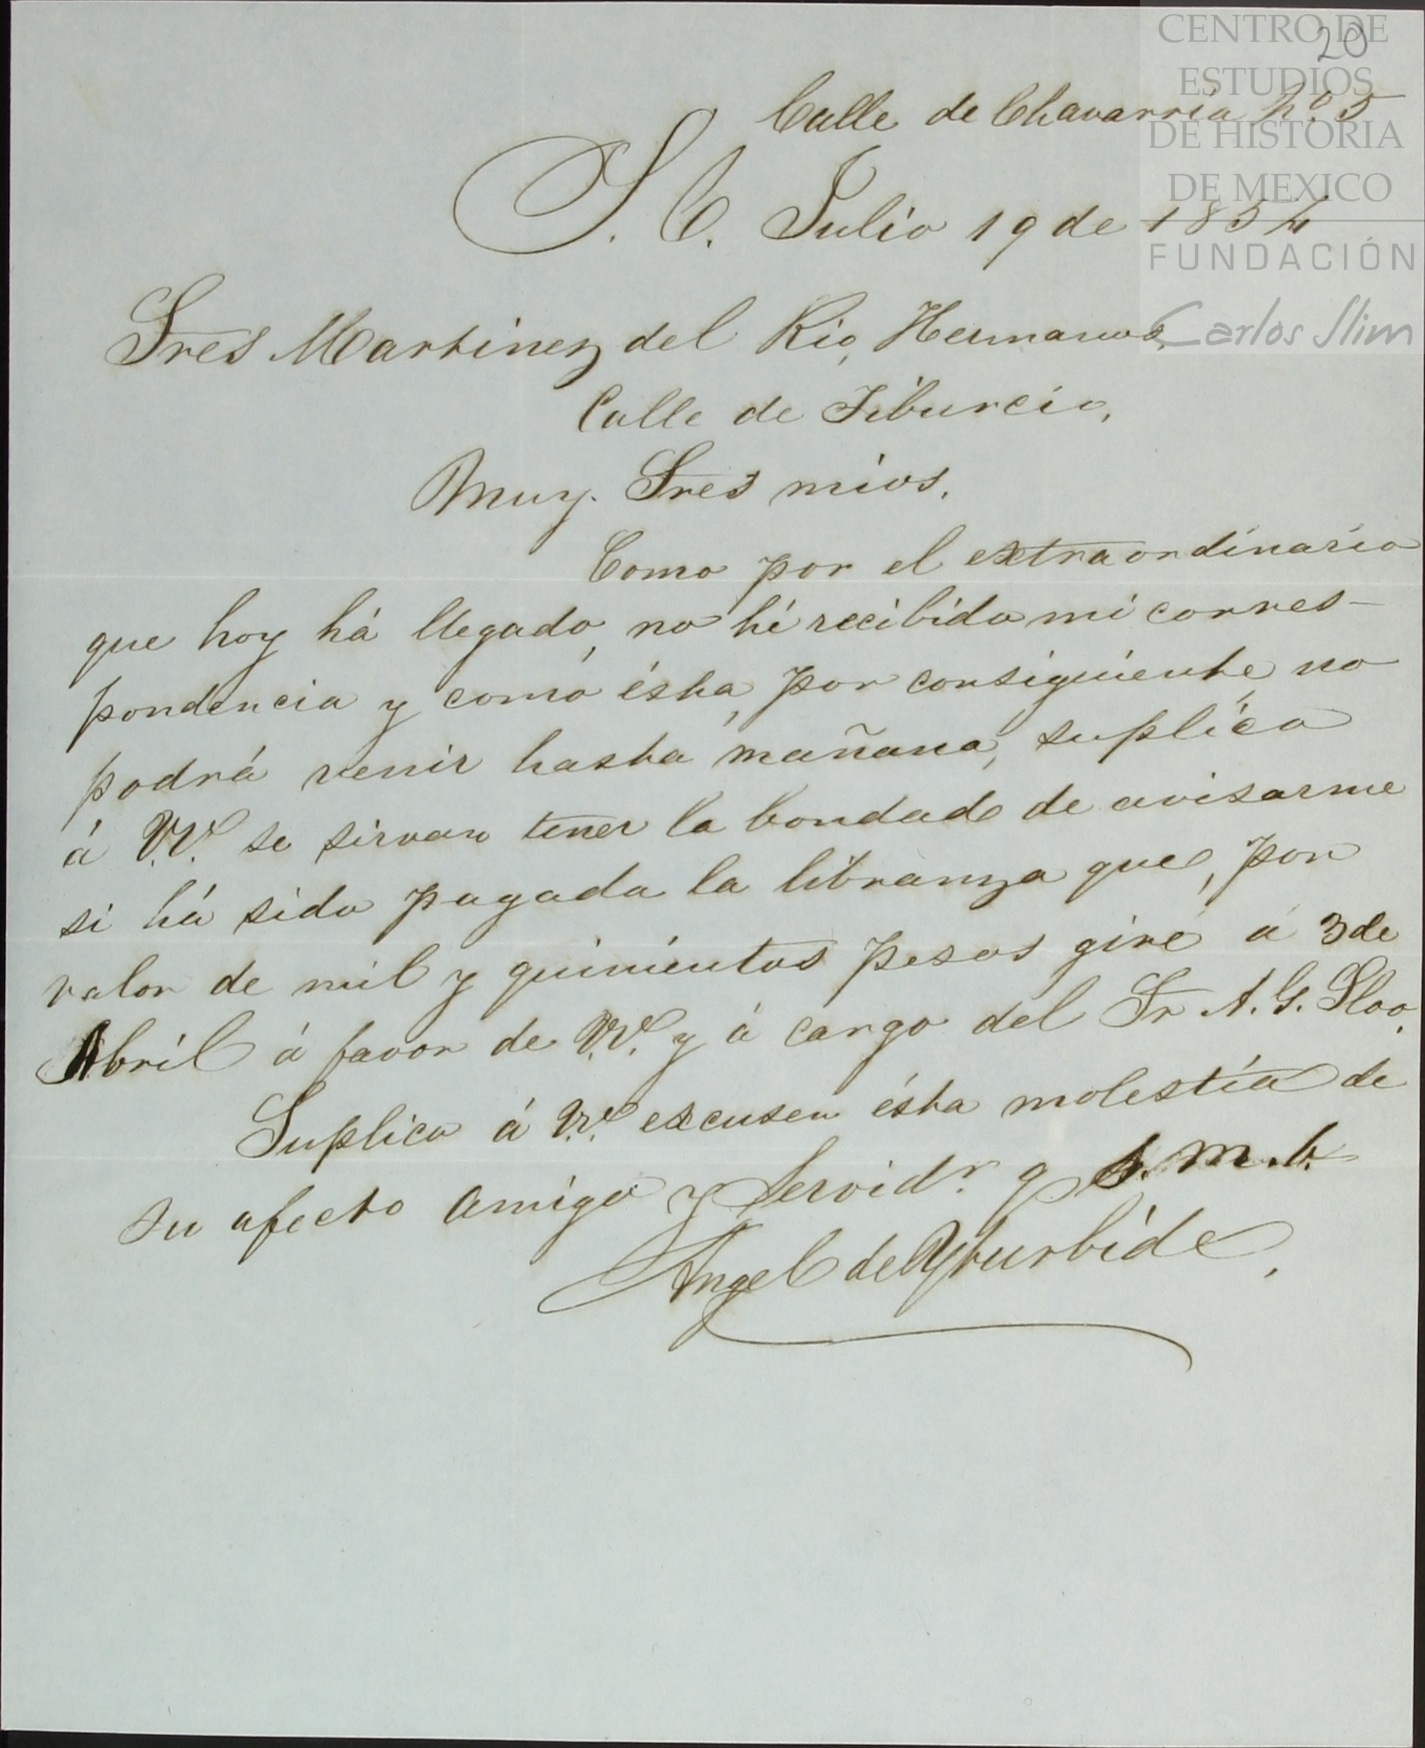 CENTRO DE
ESTUDIOS
DE HISTORIA
DE MEXICO
FUNDACIÓN
Carlos Slim
20
Calle de Chavarria No. 5
S. C. Julio 19 de 1854
Sres Martinez del Rio, Hermanos,
Calle de Tiburcio,
Muy Sres mios.
Como por el extraordinario
que hoy há llegado, no hé recibido mi corres-
pondencia y como ésta, por consiguiente, no
podrá venir hasta mañana, suplico
á V.V. se sirvan tener la bondad de avisarme
si há sido pagada la libranza que, por
valor de mil y quinientos pesos giré á 3 de
Abril á favor de V.V. y á cargo del Sr A. G. Sloo.
Suplico á V.V. escusen ésta molestia de
su afecto amigo y Servidr. q b. s. m.
Angel de Yturbide.